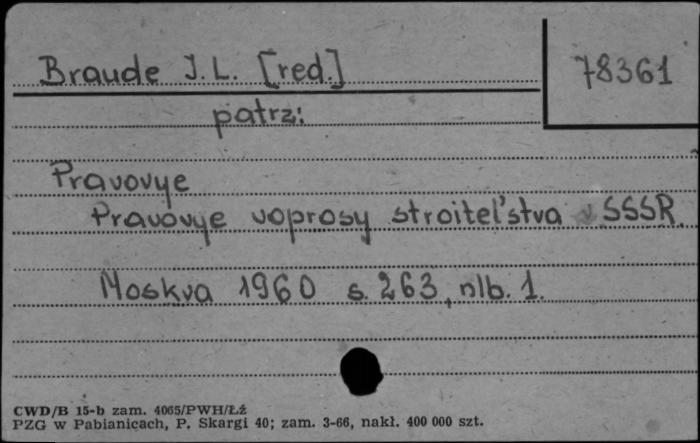 Braude J. L. [red.]
78361
patrz:
Pravovye
Pravovye voprosy stroitel'stva v SSSR.
Moskva 1960 s. 263, nlb. 1.
CWD/B 15-b zam. 4065/PWH/Łź
PZG w Pabianicach, P. Skargi 40; zam. 3-66, nakł. 400 000 szt.